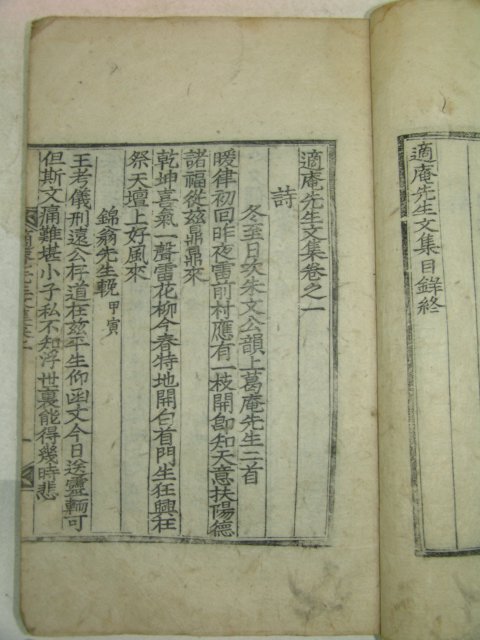 適庵先生文集目錄終
適庵先生文集卷之一
詩
冬至日次朱文公韻上葛庵先生二首
暖律初回昨夜雷前村應有一枝開卽知天意扶陽德
諸福從玆鼎鼎來
乾坤喜氣一聲雷花柳今春特地開白首門生狂興在
祭天壇上好風來
錦翁先生輓 甲寅
王考儀刑遠公存道在玆平生仰函文今日送靈輀可
但斯文痛難堪小子私不知浮世裏能得幾時悲